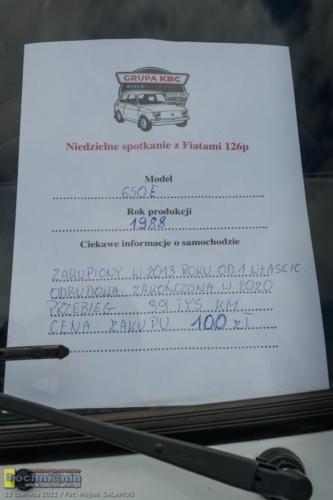 GRUPA KBC
Niedzielne spotkanie z Fiatami 126p
Model
650E
Rok produkcji
1988
Ciekawe informacje o samochodzie
ZAKUPIONY W 2013 ROKU OD 1 WŁAŚCIC.
ODBUDOWA ZAKOŃCZONA W 2020
PRZEBIEG 99 TYS KM
CENA ZAKUPU 100 ZŁ
Bochnianin
www.bochnianin.pl
13 czerwca 2021 / Fot. Wojtek SALAMON